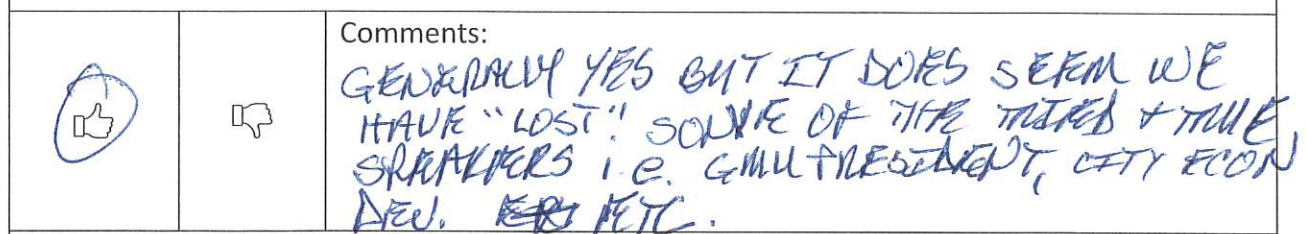 Comments:
GENERALLY YES BUT IT DOES SEEM WE
HAVE "LOST" SOME OF THE TRIED + TRUE
SPEAKERS i.e. GMU PRESIDENT, CITY ECON
DEV. ETC.